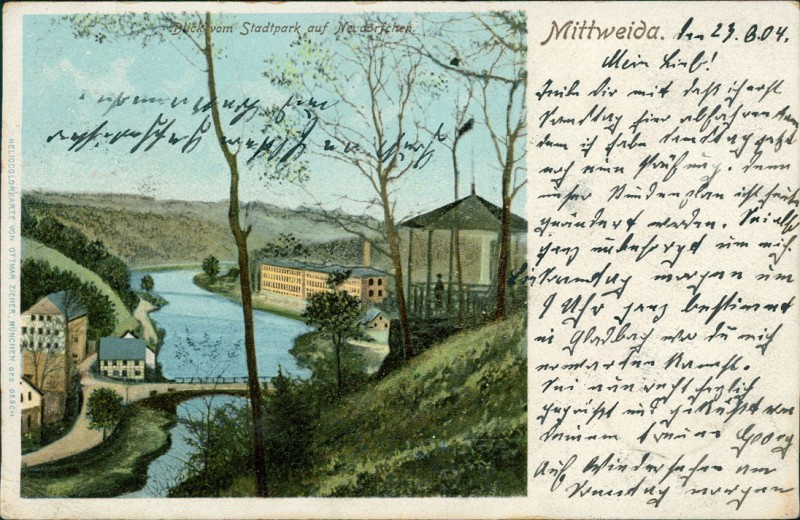 Blick vom Stadtpark auf Neudörfchen.
Mittweida. den 23.8.04.
Mein Lieb!
Teile Dir mit daß ich erst
Samstag hier abfahren kann
denn ich habe Samstag jetzt
noch eine Prüfung. Denn
unser Stundenplan ist heute
geändert worden. Sei also
ganz unbesorgt um mich.
Sonntag morgen um
9 Uhr ganz bestimmt
in Gladbach wo du mich
erwarten kannst.
Sei nun recht herzlich
gegrüßt und geküßt von
Deinem treuen Georg
Auf Wiedersehen am
Sonntag morgen
HELIOCOLORKARTE VON OTTMAR ZIEHER, MÜNCHEN GES. GESCH.